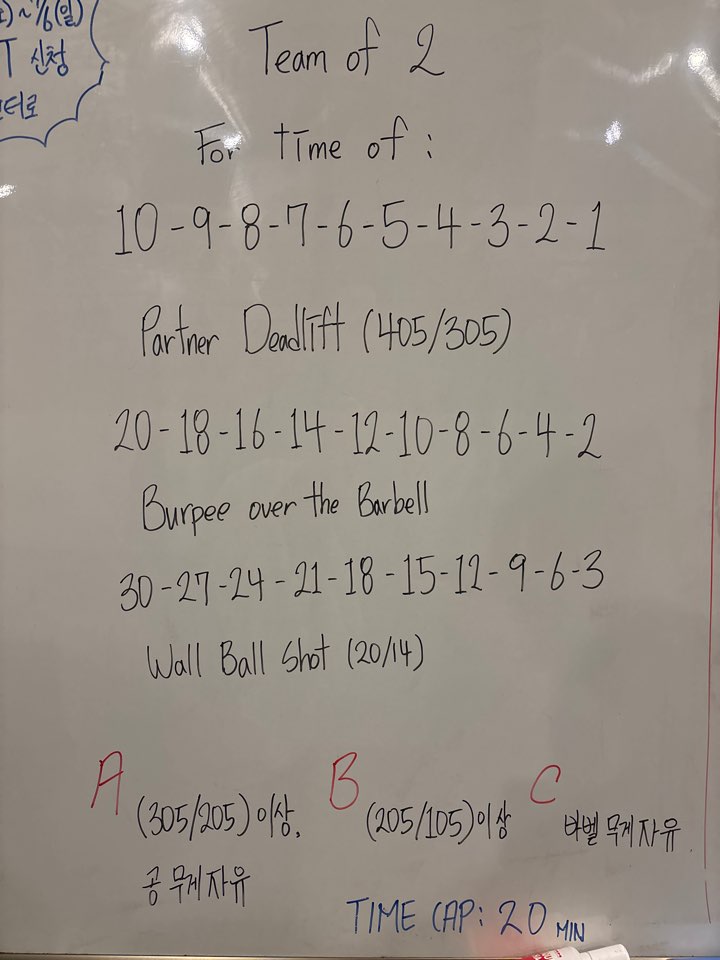 ~7/6(일)
T 신청
센터로
Team of 2
For time of :
10-9-8-7-6-5-4-3-2-1
Partner Deadlift (405/305)
20-18-16-14-12-10-8-6-4-2
Burpee over the Barbell
30-27-24-21-18-15-12-9-6-3
Wall Ball Shot (20/14)
A (305/205) 이상,
공 무게 자유
B (205/105) 이상
C 바벨 무게 자유
TIME CAP: 20 MIN